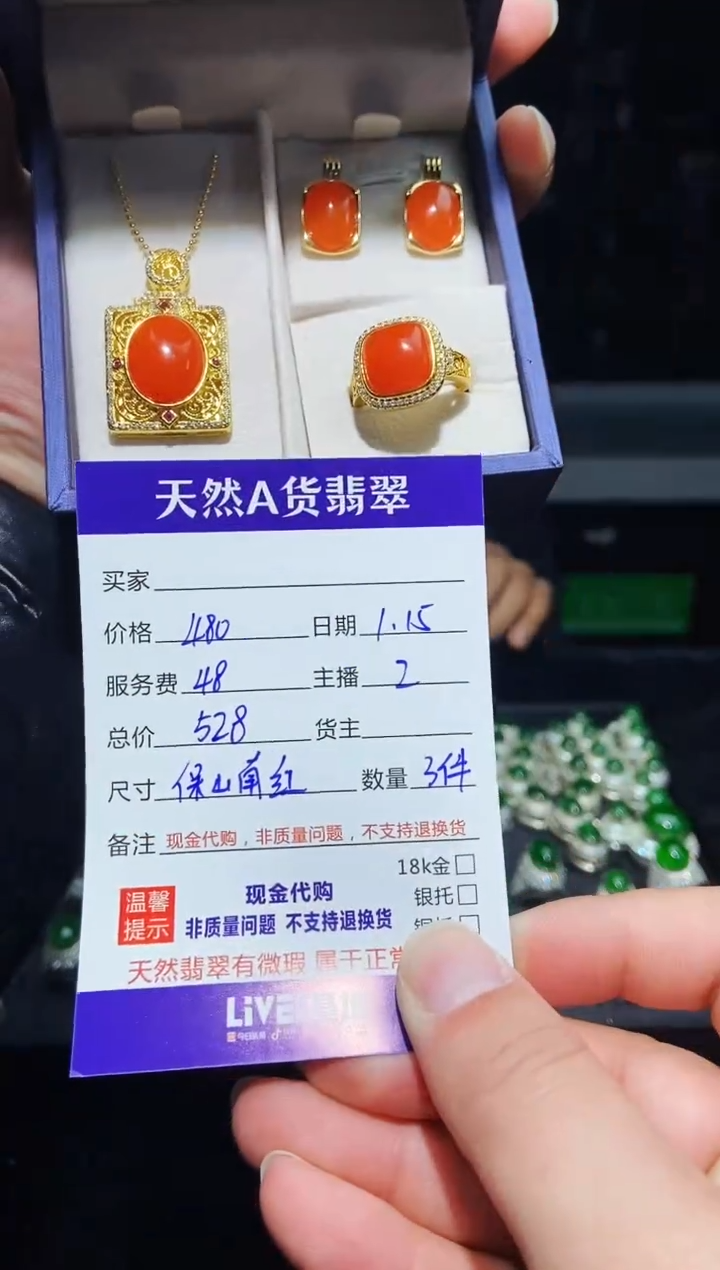 天然A货翡翠
买家
价格 480 日期 1.15
服务费 48 主播 2
总价 528 货主
尺寸 保山南红 数量 3件
备注 现金代购，非质量问题，不支持退换货
18k金
温馨提示 现金代购 银托
非质量问题 不支持退换货
天然翡翠有微瑕 属于正常
LiVE